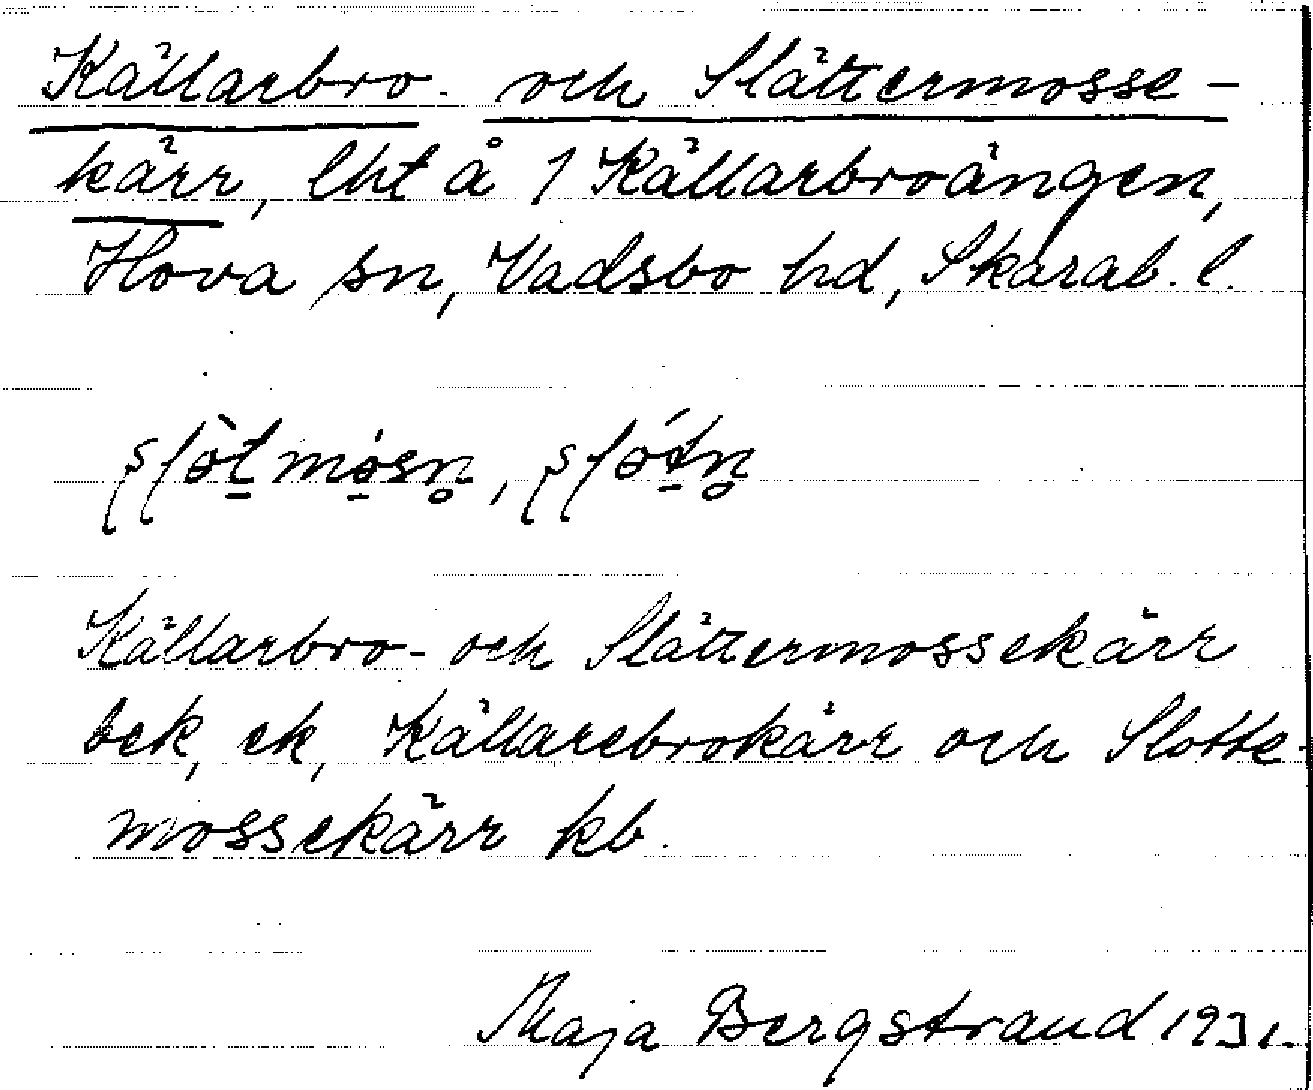 Källarbro- och Slättermosse-
kärr, lht å 1 Källarbroängen,
Hova sn, Vadsbo hd, Skarab. l.
Källarbro- och Slättermossekärr
bek, ek, Källarebrokärr och Slotte-
mossekärr kb.
Maja Bergstrand 1931.